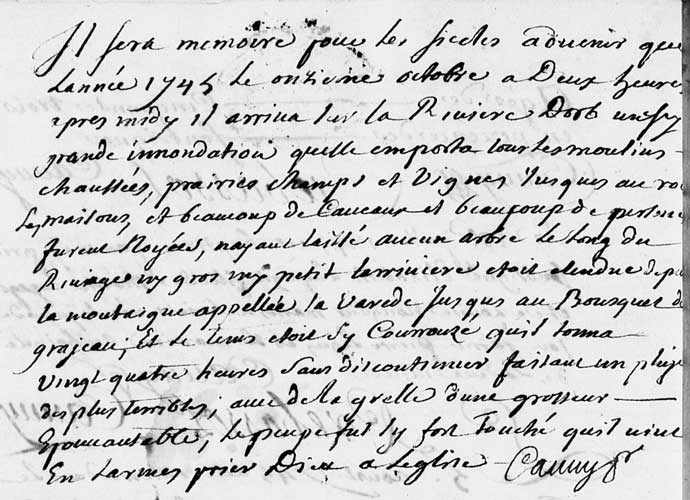 Il sera memoire pour les siecles advenir que
Lannée 1745 Le onzieme octobre a Deux heures
apres midy il arriva sur la Riviere Dorb une sy
grande innondation quelle emporta tous les moulins
chaussées, prairies champs et vignes Jusques au
Les maisons, et beaucoup de Caveaux et beaucoup de personnes
furent Noyées, nayant laissé aucun arbre Le long du
Rivage ny gros ny petit la riviere etoit etendue depuis
la montaigne appellée la varede Jusques au Bousquet de
grajeau, Et le tems etoit sy Courrouzé quil tonna
vingt quatre heures sans discontinuer faisant un pluye
des plus terribles, avec de la grelle dune grosseur
Epouvantable, Le peuple fut sy fort Touché quil vint
En Larmes prier Dieu a Leglise